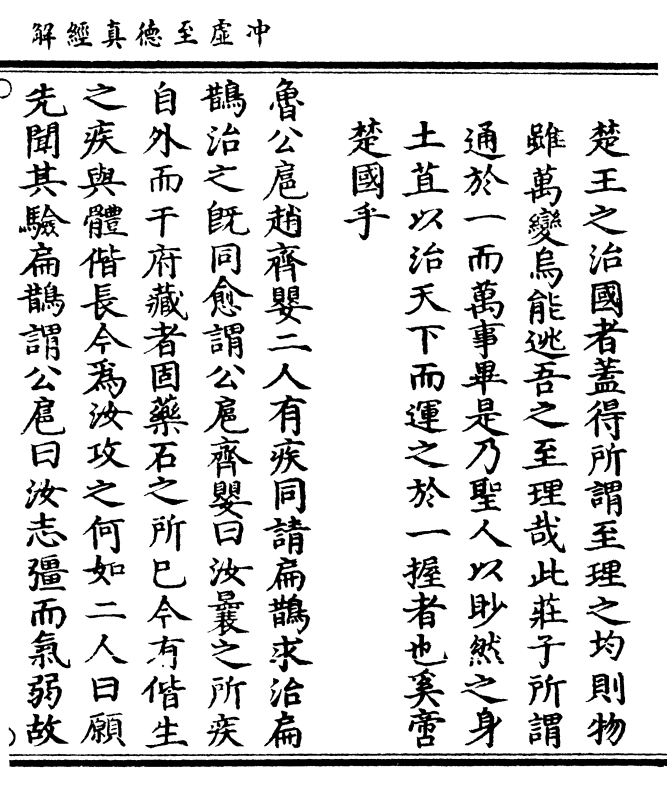 冲虛至德真經解
楚王之治國者蓋得所謂至理之均則物
雖萬變烏能逃吾之至理哉此莊子所謂
通於一而萬事畢是乃聖人以眇然之身
土苴以治天下而運之於一握者也奚啻
楚國乎
魯公扈趙齊嬰二人有疾同請扁鵲求治扁
鵲治之旣同愈謂公扈齊嬰曰汝曩之所疾
自外而干府藏者固藥石之所已今有偕生
之疾與體偕長今爲汝攻之何如二人曰願
先聞其驗扁鵲謂公扈曰汝志彊而氣弱故